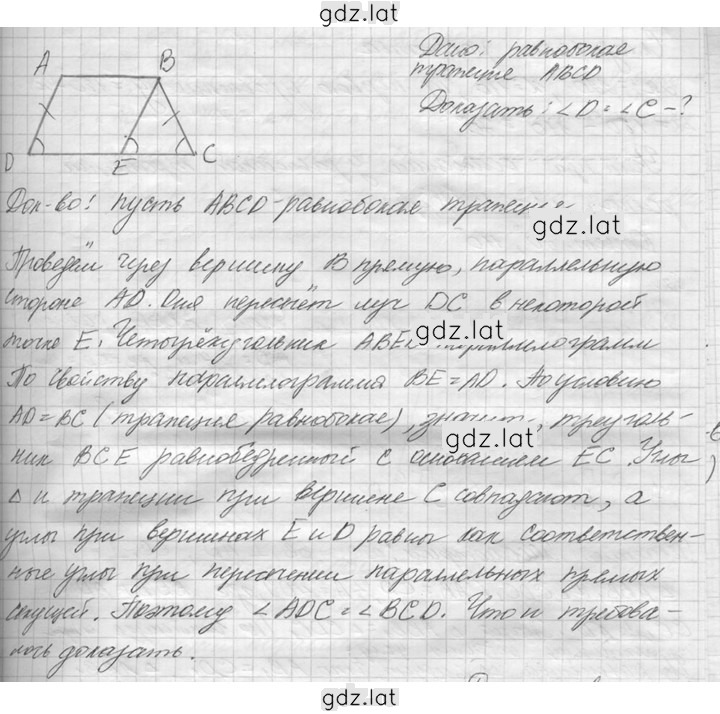 gdz.lat
Дано: равнобокая
трапеция ABCD
Доказать: ∠D = ∠C - ?
A B
D E C
Док-во: пусть ABCD - равнобокая
gdz.lat
Проведём через вершину B прямую, параллельную
стороне AD. Она пересечёт луч DC в некоторой
gdz.lat
точке E. Четырёхугольник
По свойству параллелограмма BE = AD. По условию
AD = BC (трапеция равнобокая), треуголь-
gdz.lat
ник BCE равнобедренный с основанием EC. Углы
△ и трапеции при вершине C совпадают, а
углы при вершинах E и D равны как соответствен-
ные углы при пересечении параллельных прямых
секущей. Поэтому ∠ADC = ∠BCD. Что и требова-
лось доказать.
gdz.lat